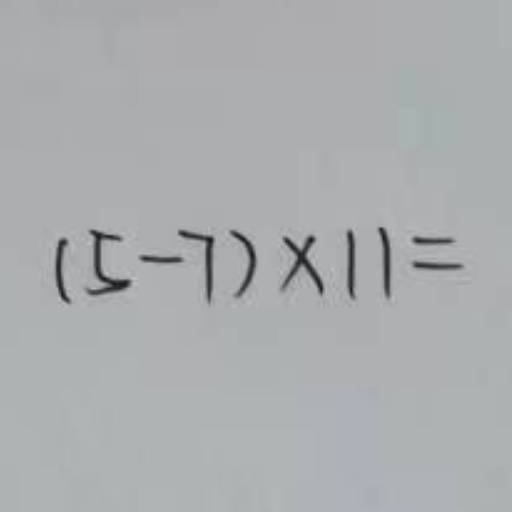 (5-7)×11=